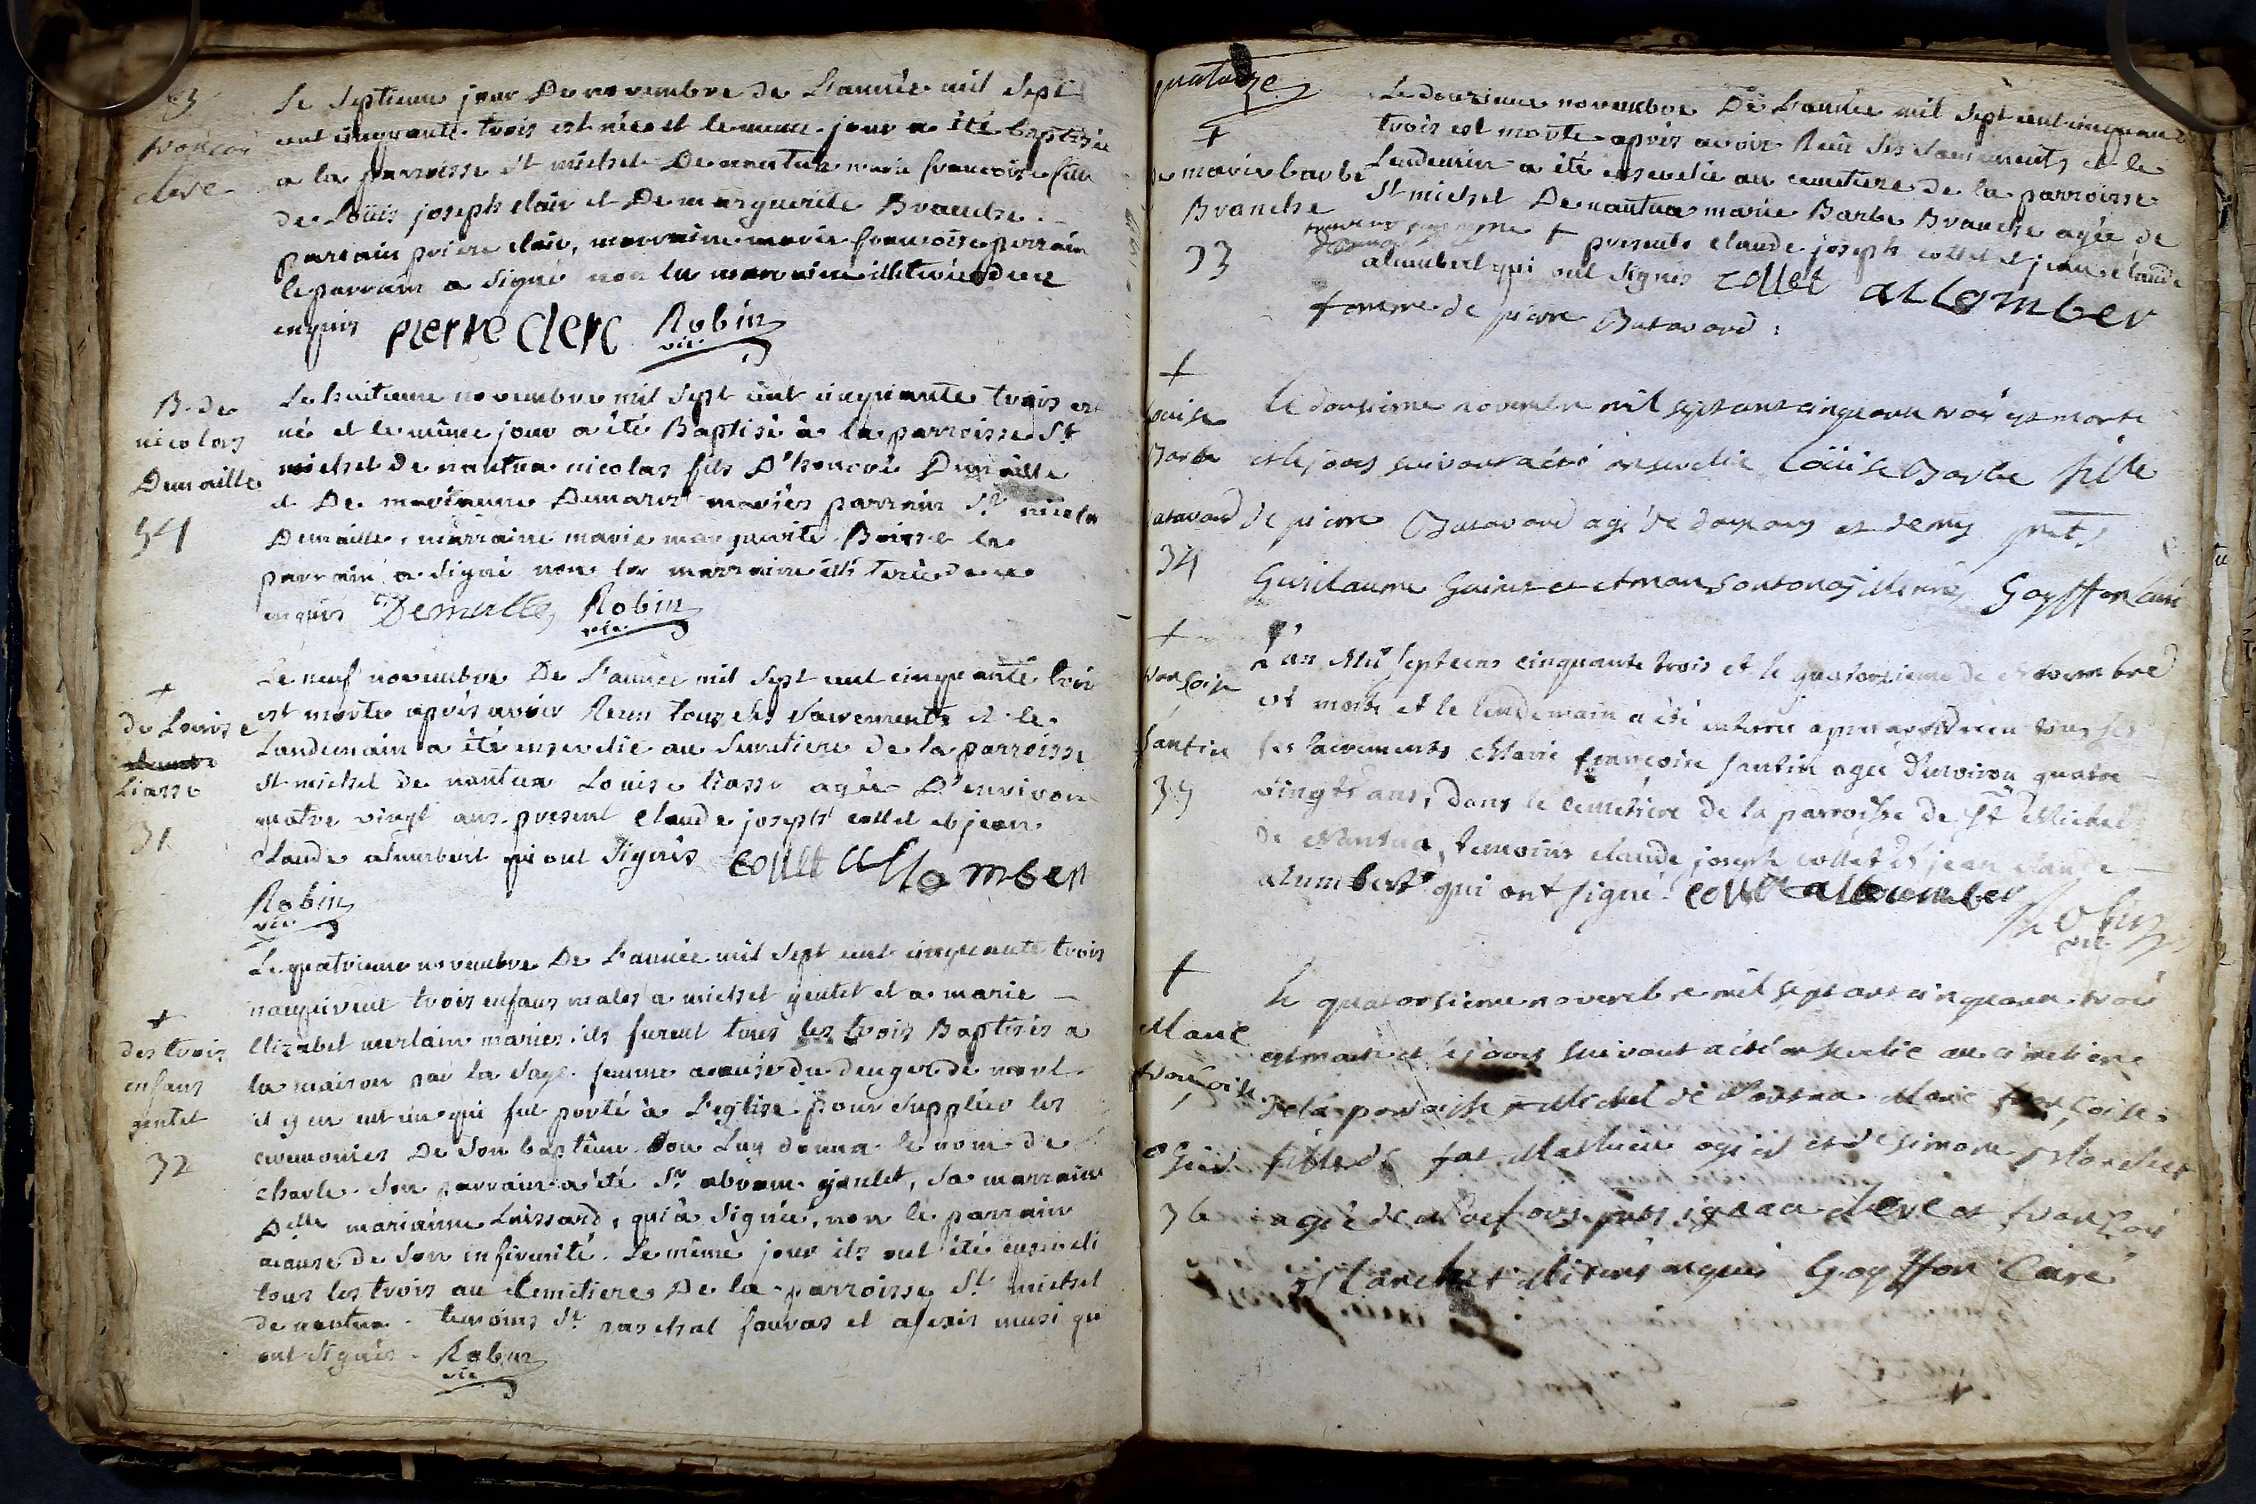 françoi
clere
Le septieme jour De novembre de L'année mil Sept
cent cinquante trois est née et le meme jour a été baptisée
a la parroisse St michel De nantua marie francoise fille
de Loüis joseph clair et De marguerite Branche
parrain pierre clair, marraine marie francoise perrain
le parrain a signé non la marraine illiterée de ce
enquis pierre clerc Robin
vic.
B. de
nicolas
Demaille
54
Le huitieme novembre mil Sept cent cinquante trois est
né et le même jour a été Baptisé à la parroisse St
michel de nantua nicolas fils D'honoré Demaille
et De mariés parrain Sr nicolas
Demaille, marraine marie marguerite le
parrain a signé non la marraine illiterée de ce
enquis Demaille Robin
vic.
+
de Louise
Liasse
31
Le neuf novembre De L'année mil Sept cent cinquante trois
est morte après avoir Receu tous ses sacrements et le
Landemain a été ensevelie au semetiere de la parroisse
St michel de nantua Louise liasse agée D'environ
quatre vingt ans. present claude joseph collet et jean
claude alumbert qui ont Signés collet allomber
Robin
vic.
+
des trois
enfans
gentet
32
Le quatrieme novembre De L'année mil Sept cent cinquante trois
naquirent trois enfans males a michel gentet et a marie
Elizabet merlain mariés. ils furent tous les trois Baptisés a
la maison par la sage femme acause du denger de mort.
il y en eut un qui fut porté à L'eglise pour supplier les
ceremonies De son baptême. Lon Luy donna le nom de
charle. son parrain a été Sr abram gentet, sa marraine
Delle marianne Luissard, qui a signée, non le parrain
acause de son infirmité. Le même jour ils ont été enseveli
tous les trois au Cemetiere De la parroisse St michel
de nantua. temoins Sr paschal fauvas et alexis musi qui
ont signés. Robin
vic.
quatorze
+
de marie barbe
Branche
33
Le douzieme novembre De L'année mil Sept cent cinquante
trois est morte après avoir Reeu ses sacrements et le
Lendemain a été ensevelie au cemetiere de la parroisse
St michel De nantua marie Barbe Branche agée de
+ presents claude joseph collet et jean claude
alumbert qui ont signés collet allomber
+ femme de pierre Butavand:
+
Louise
Barbe
Butavand
34
le douzieme novembre mil sept cent cinquante trois est morte
et le jour suivant a été ensevelie Loüise Barbe fille
de pierre Butavand agé de douze ans et demy
Guillaume et Goyffon Curé
+
françoise
fantin
35
L'an Mil Sept cens cinquante trois et le quatorzieme de Novembre
est morte et le lendemain a été enterré apres avoir receu tous ses
ses sacrements Marie françoise fantin agée d'environ quatre
vingts ans, dans le cemetiere de la parroisse de St Michel
de Nantua, temoins claude joseph collet et jean claude
alumbert qui ont signé. collet alloumber
Robin
vic
+
Marie
françoise
36
le quatorzieme novembre mil sept cent cinquante trois
est morte et le jour suivant a été ensevelie au cimetiere
de la parroisse St Michel de Nantua Marie françoise
fille de feu Mathieu et de simone Marchet
agée de ans clere et françois
Marchet enquis Goyffon Curé